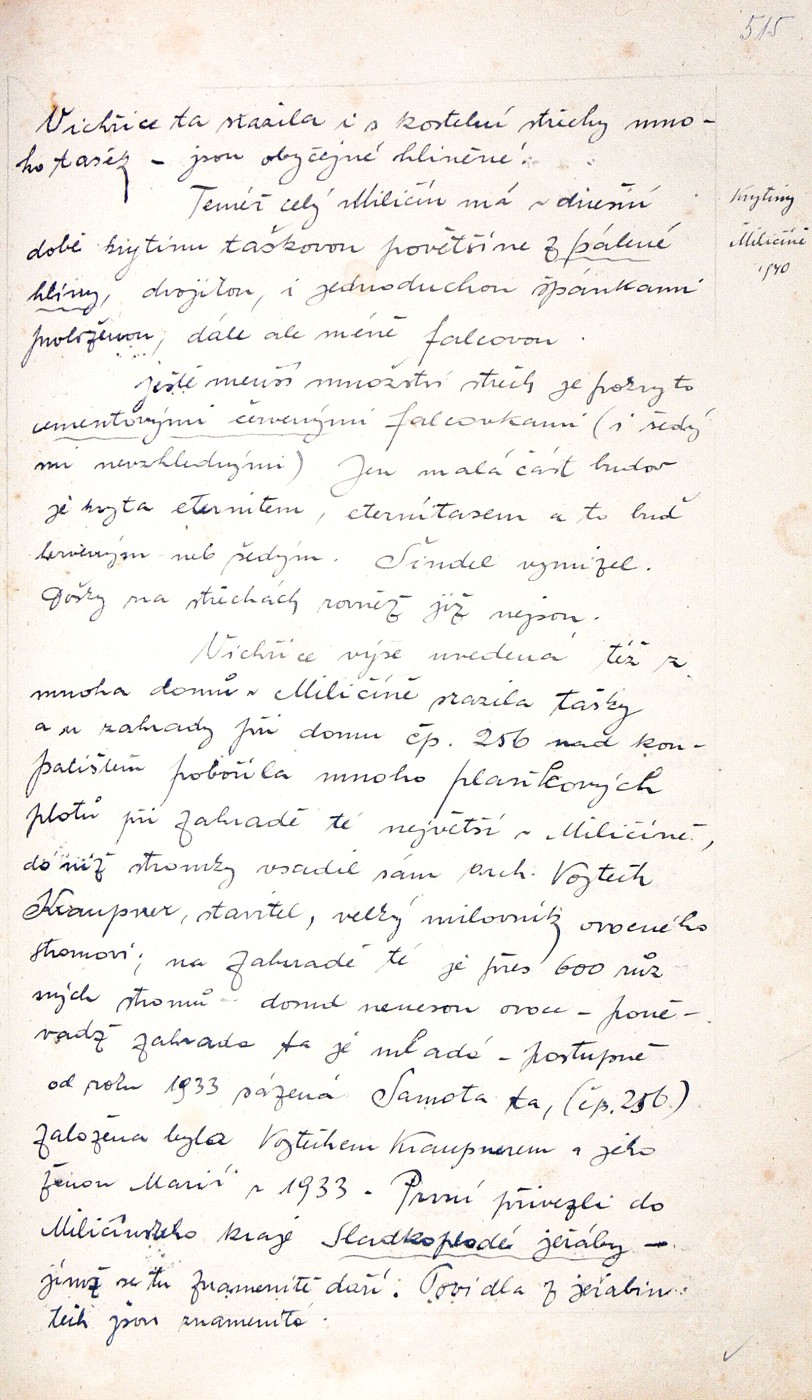 515
Vichřice ta srazila i s kostelní střechy mno-
ho tašek – jsou obyčejné hliněné.
Téměř celý Miličín má v dnešní
době krytinu taškovou povětšine z pálené
hlíny, dvojitou, i jednoduchou špánkami
položenou, dále ale méně falcovou.
Krytiny
Miličíně
1940
Ještě menší množství střech je pokryto
cementovými červenými falcovkami (i šedý
mi nevzhlednými) Jen malá část budov
je kryta eternitem, eternitasem a to buď
červeným neb šedým. Šindel vymizel.
Došky na střechách rovněž již nejsou.
Vichřice výše uvedená též z
mnoha domů v Miličíně srazila tašky
a u zahrady při domu čp. 256 nad kou-
palištěm pobořila mnoho plaňkových
plotů při zahradě té největší v Miličíně,
do níž stromky vsadil sám arch. Vojtěch
Kraupner, stavitel, velký milovník ovocného
stromoví; na zahradě té je přes 600 růz
ných stromů dosud nenesou ovoce – poně-
vadž zahrada ta je mladá – postupně
od roku 1933 sázená Samota ta, (čp. 256.)
založena byla Vojtěchem Kraupnerem a jeho
ženou Marií r 1933. První přivezli do
Miličínského kraje Sladkoplodé jeřáby –
jímž se tu znamenitě daří. Povidla z jeřabin
těch jsou znamenitá.